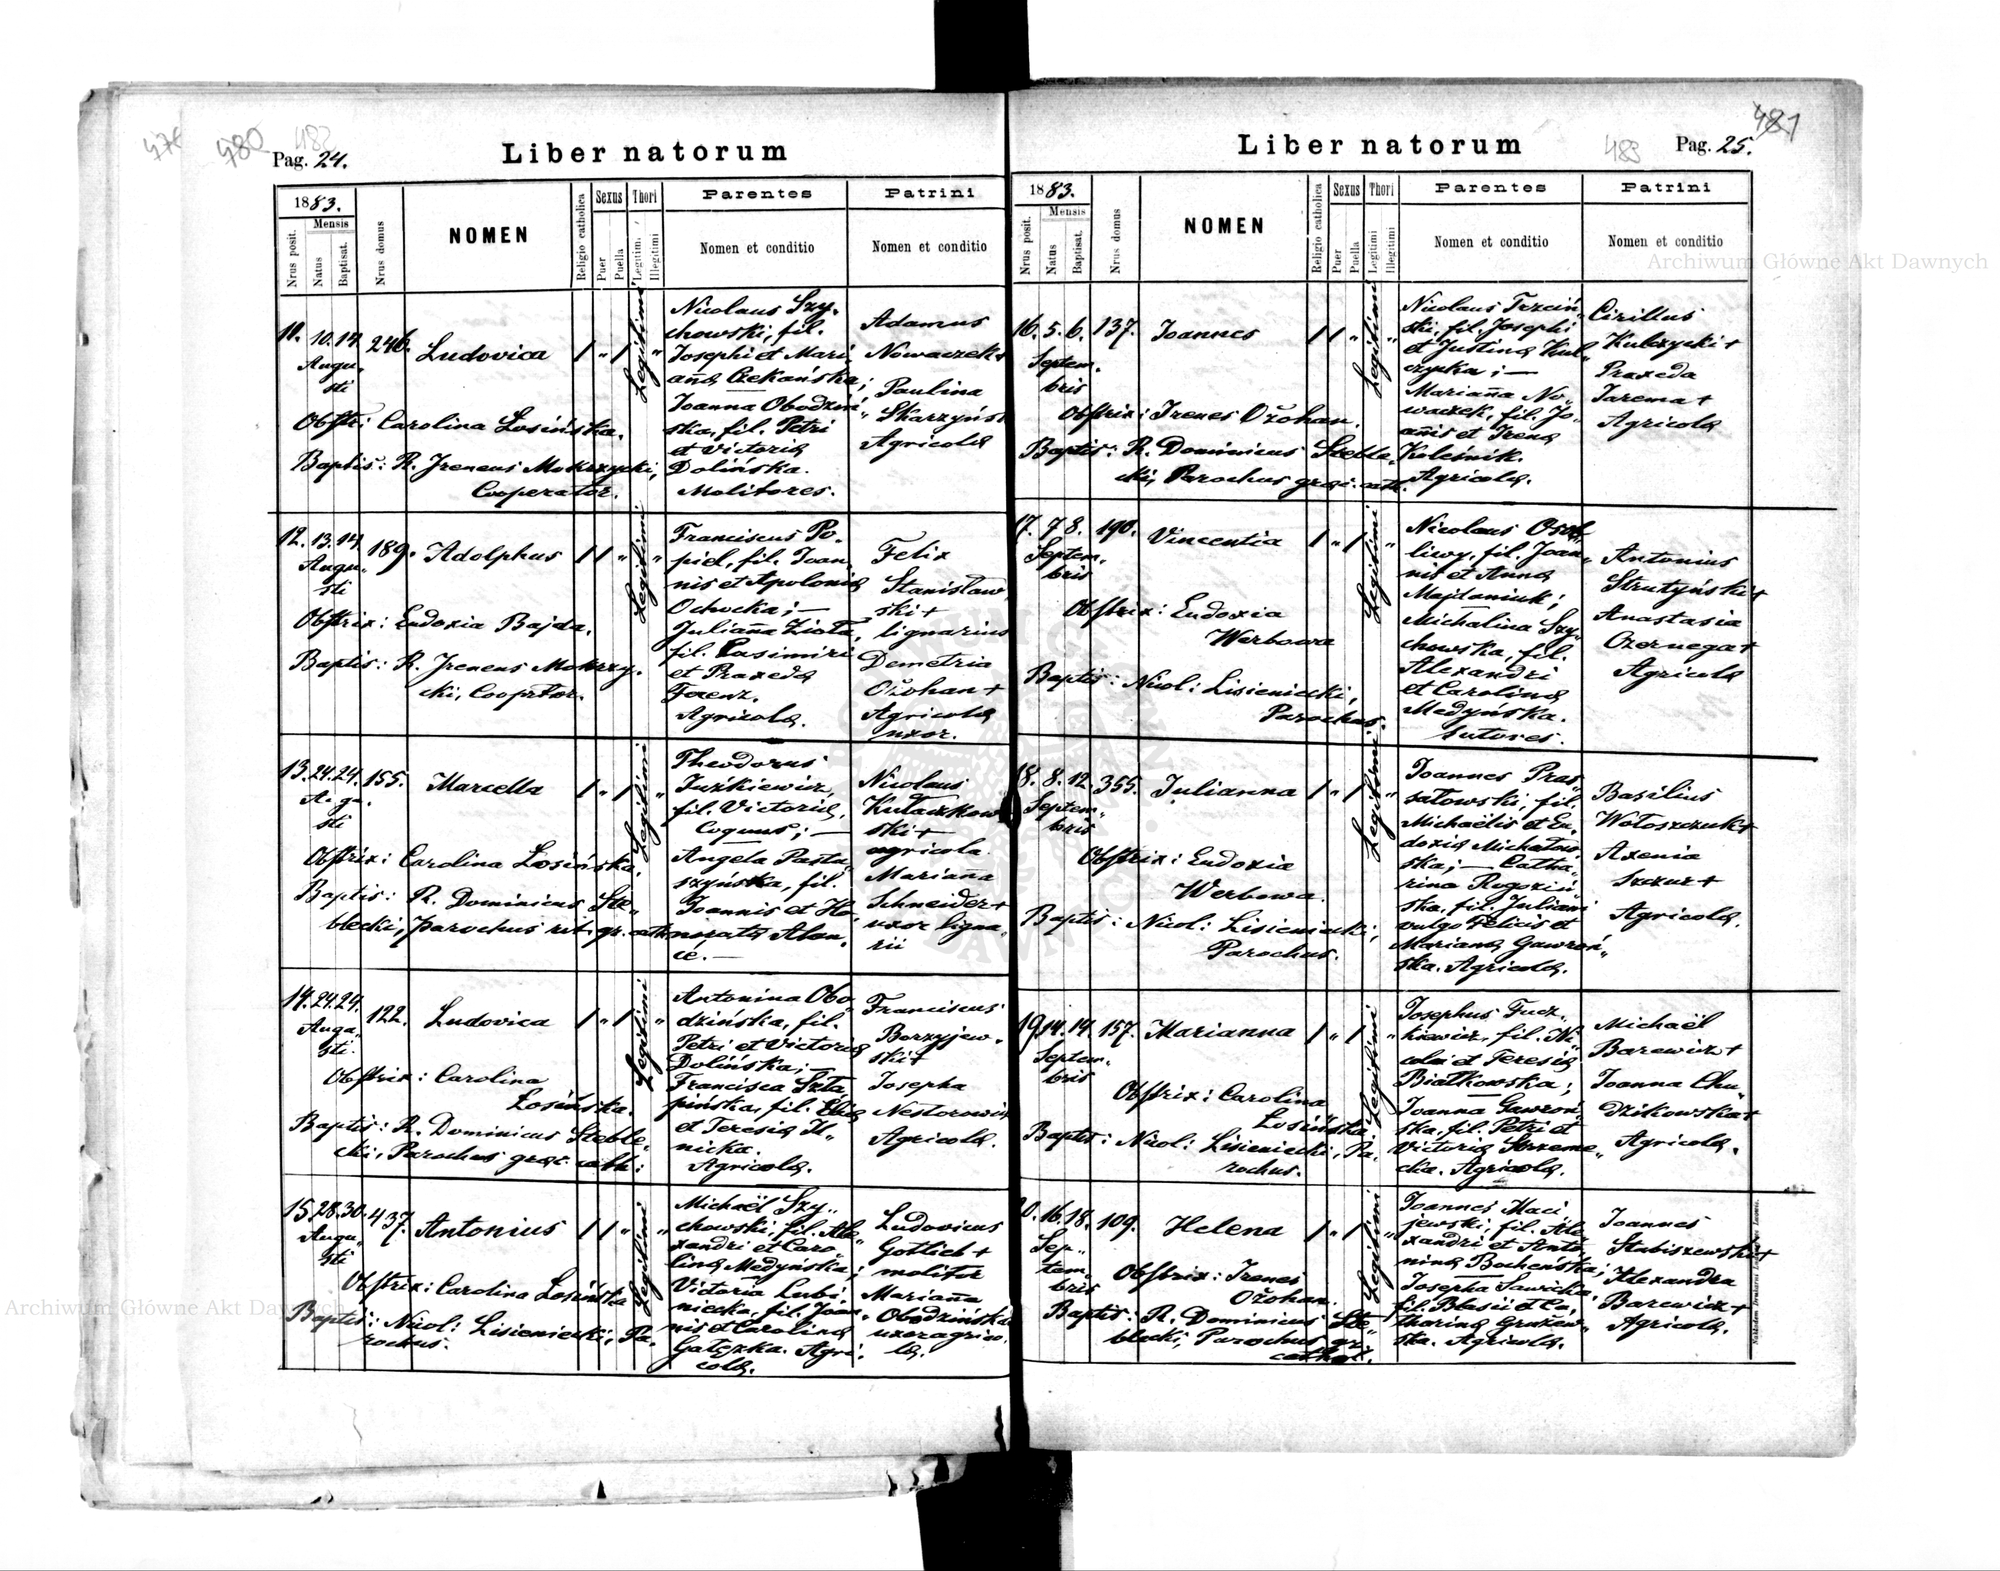 Pag. 24.
Liber natorum
1883.
Mensis
Nrus posit.
Natus
Baptisat.
Nrus domus
NOMEN
Religio catholica
Sexus
Puer
Puella
Thori
Legitimi
Illegitimi
Parentes
Nomen et conditio
Patrini
Nomen et conditio
11. 10. 14. 246. Ludovica
Augu-
sti
Obstr: Carolina Łosińska.
Baptis: R. Jreneus Mokrzycki,
Cooperator.
Legitimi
Nicolaus Szy-
chowski, fil.
Josephi et Mari-
annæ Czekańska;
Joanna Obodziń-
ska, fil. Petri
et Victoriæ
Dolińska.
Molitores.
Adamus
Nowaczek+
Paulina
Skarzyńsk
Agricolæ
12. 13. 14. 189. Adolphus
Augu-
sti
Obstrix: Eudoxia Bajda.
Baptis: R. Jreneus Mokrzy-
cki, Cooprtor.
Legitimi
Franciscus Po-
piel, fil. Joan-
nis et Apoloniæ
Ochocka; —
Julianna Zioła,
fil. Casimiri
et Praxedæ
Ferenz.
Agricolæ.
Felix
Stanisław-
ski+
lignarius
Demetria
Ożohan+
Agricolæ
uxor.
13. 24. 24. 155. Marcella
Augu-
sti
Obstrix: Carolina Łosińska.
Baptis: R. Dominicus Ste-
blecki, parochus rit. gr. cath.
Legitimi
Theodorus
Juzkiewicz,
fil. Victoriæ,
Coquus; —
Angela Pasta-
szyńska, fil.
Joannis et Ho-
noratæ
Nicolaus
Kułaczkow-
ski+
agricola.
Marianna
Schneider+
uxor ligna-
rii
14. 24. 24. 122. Ludovica
Augu-
sti.
Obstrix: Carolina
Łosińska.
Baptis: R. Dominicus Steble-
cki, Parochus græc. cath:
Legitimi
Antonina Obo-
dzińska, fil.
Petri et Victoriæ
Dolińska; —
Francisca Szta-
pińska, fil. Eliæ
et Teresiæ Il-
nicka.
Agricolæ.
Franciscus
Borzyjew-
ski+
Josepha
Nestorowicz
Agricolæ.
15. 28. 30. 437. Antonius
Augu-
sti
Obstrix: Carolina Łosińska
Baptis: Nicol: Lisieniecki, Pa-
rochus.
Legitimi
Michaël Szy-
chowski, fil. Ale-
xandri et Caro-
linæ Medyńska;
Victoria Lubi-
niecka, fil. Joan-
nis et Carolinæ
Gałęzka. Agri-
colæ.
Ludovicus
Gotlich+
molitor
Marianna
Obodzińska
uxor agrico-
læ.
Liber natorum
Pag. 25.
1883.
Mensis
Nrus posit.
Natus
Baptisat.
Nrus domus
NOMEN
Religio catholica
Sexus
Puer
Puella
Thori
Legitimi
Illegitimi
Parentes
Nomen et conditio
Patrini
Nomen et conditio
16. 5. 6. 137. Joannes
Septem-
bris
Obstrix: Irenes Ożohan.
Baptis: R. Dominicus Steble-
cki, Parochus græc. cath.
Legitimi
Nicolaus Trzciń-
ski, fil. Josephi
et Justinæ Kul-
czycka; —
Marianna No-
waczek, fil. Jo-
annis et Irenæ
Koleśnik.
Agricolæ.
Cirillus
Kulczycki+
Praxeda
Jarema+
Agricolæ
17. 7. 8. 190. Vincentia
Septem-
bris
Obstrix: Eudoxia
Werbowa
Baptis: Nicol: Lisieniecki,
Parochus.
Legitimi
Nicolaus Osob-
liwy, fil. Joan-
nis et Annæ
Majdaniuk;
Michalina Szy-
chowska, fil.
Alexandri
et Carolinæ
Medyńska.
Sutores.
Antonius
Strutyński+
Anastasia
Czernega+
Agricolæ
18. 8. 12. 355. Julianna
Septem-
bris
Obstrix: Eudoxia
Werbowa.
Baptis: Nicol: Lisieniecki,
Parochus.
Legitimi
Joannes Pras-
sałowski, fil.
Michaëlis et Eu-
doxiæ Michałow-
ska; — Catha-
rina Rogoziń-
ska, fil. Juliani
vulgo Felicis et
Mariannæ Gawroń-
ska. Agricolæ.
Basilius
Wołoszczuk+
Axenia
Szczur+
Agricolæ.
19. 14. 14. 157. Marianna
Septem-
bris
Obstrix: Carolina
Łosińska
Baptis: Nicol: Lisieniecki, Pa-
rochus.
Legitimi
Josephus Jucz-
kiewicz, fil. Ni-
colai et Teresiæ
Białkowska;
Joanna Gawroń-
ska, fil. Petri et
Victoriæ Strzeme-
cka. Agricolæ.
Michaël
Barewicz+
Joanna Chu-
dzikowska+
Agricolæ.
20. 16. 18. 109. Helena
Sep-
tem-
bris
Obstrix: Irenes
Ożohan.
Baptis: R. Dominicus Ste-
blecki, Parochus gr.
cathol.
Legitimi
Joannes Maci-
jewski, fil. Ale-
xandri et Anto-
ninæ Bocheńska;
Josepha Sawicka,
fil. Blasii et Ca-
tharinæ Gruszew-
ska. Agricolæ.
Joannes
Stabiszewski+
Alexandra
Barewicz+
Agricolæ.
Archiwum Główne Akt Dawnych
Archiwum Główne Akt Dawnych